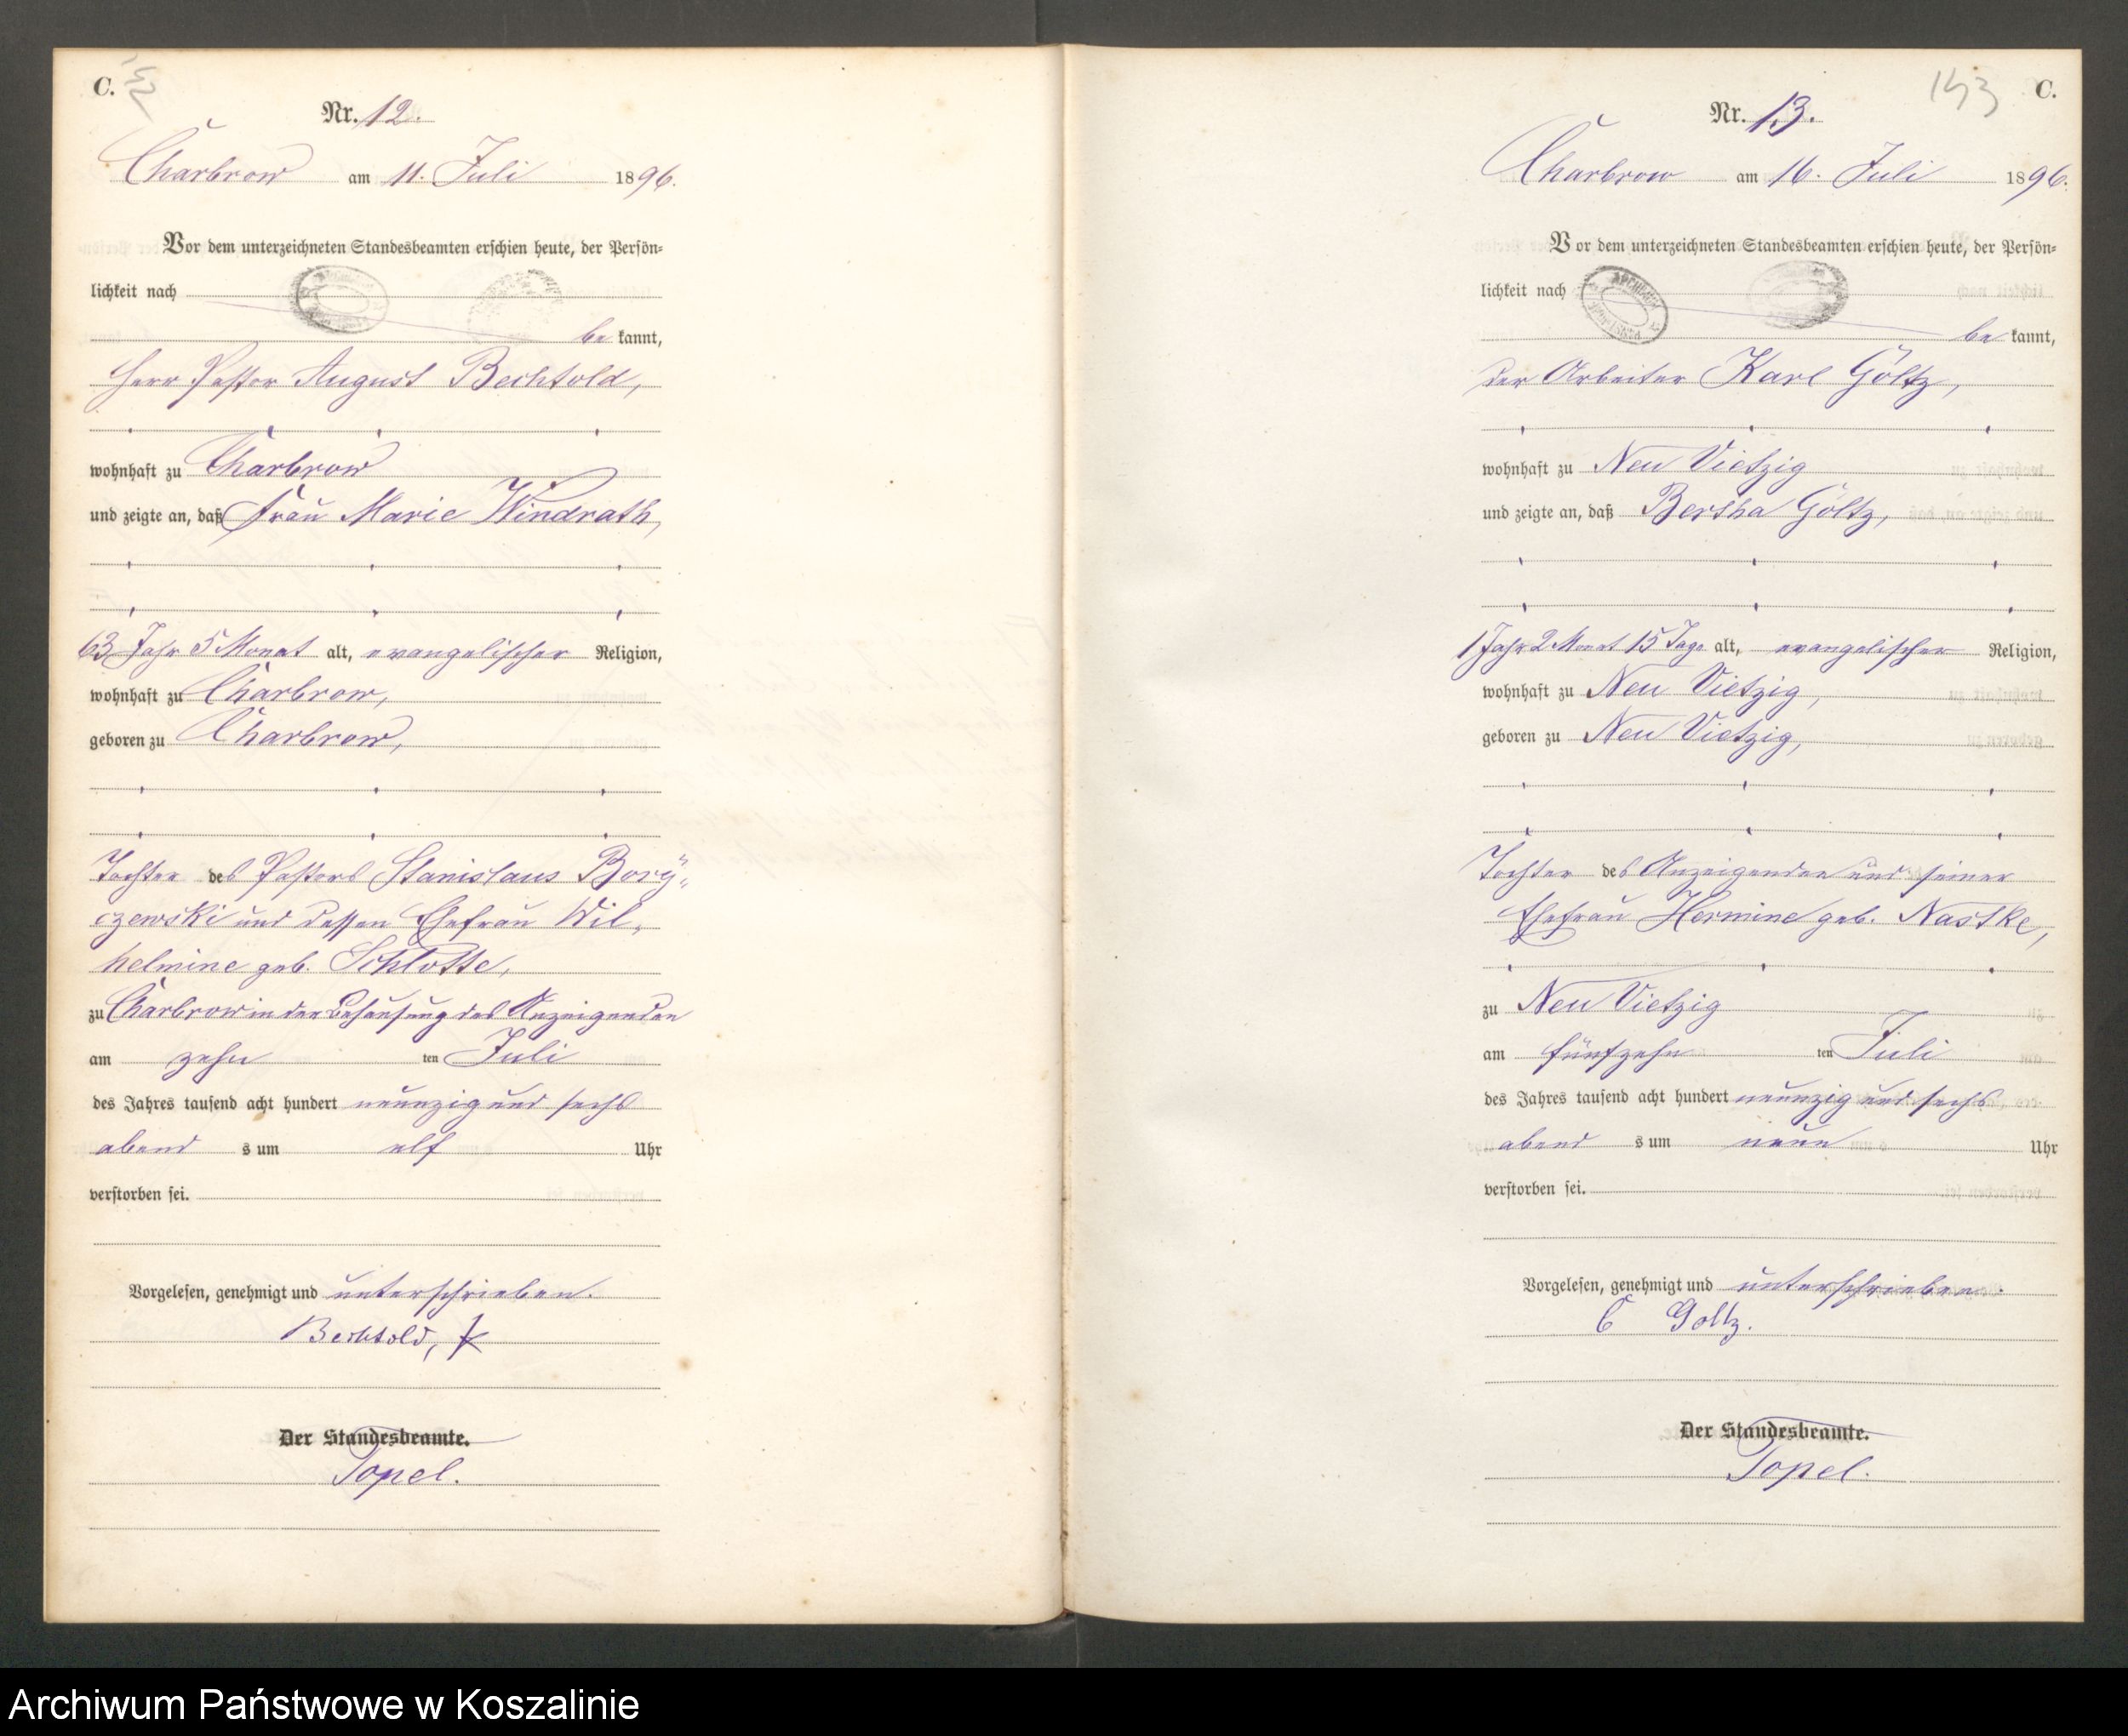 C.
Nr. 12.
Charbrow am 11. Juli 1896.
Vor dem unterzeichneten Standesbeamten erschien heute, der Persön-
lichkeit nach
be kannt,
Herr Pastor August Bechtold,
wohnhaft zu Charbrow
und zeigte an, daß Frau Marie Windrath,
63 Jahr 5 Monat alt, evangelischer Religion,
wohnhaft zu Charbrow,
geboren zu Charbrow,
Tochter des Pastors Stanislaus Bory-
czewski und dessen Ehefrau Wil-
helmine geb. Schlotte,
zu Charbrow in der Behausung des Anzeigenden
am zehn ten Juli
des Jahres tausend acht hundert neunzig und sechs
abend s um elf Uhr
verstorben sei.
Vorgelesen, genehmigt und unterschrieben.
Bechtold,
Der Standesbeamte.
Topel.
153 C.
Nr. 13.
Charbrow am 16. Juli 1896.
Vor dem unterzeichneten Standesbeamten erschien heute, der Persön-
lichkeit nach
be kannt,
der Arbeiter Karl Göltz,
wohnhaft zu Neu Vietzig
und zeigte an, daß Bertha Göltz,
1 Jahr 2 Monat 15 Tage alt, evangelischer Religion,
wohnhaft zu Neu Vietzig,
geboren zu Neu Vietzig,
Tochter des Anzeigenden und seiner
Ehefrau Hermine geb. Nastke,
zu Neu Vietzig
am fünfzehn ten Juli
des Jahres tausend acht hundert neunzig und sechs
abend s um neun Uhr
verstorben sei.
Vorgelesen, genehmigt und unterschrieben.
C Goltz.
Der Standesbeamte.
Topel.
Archiwum Państwowe w Koszalinie